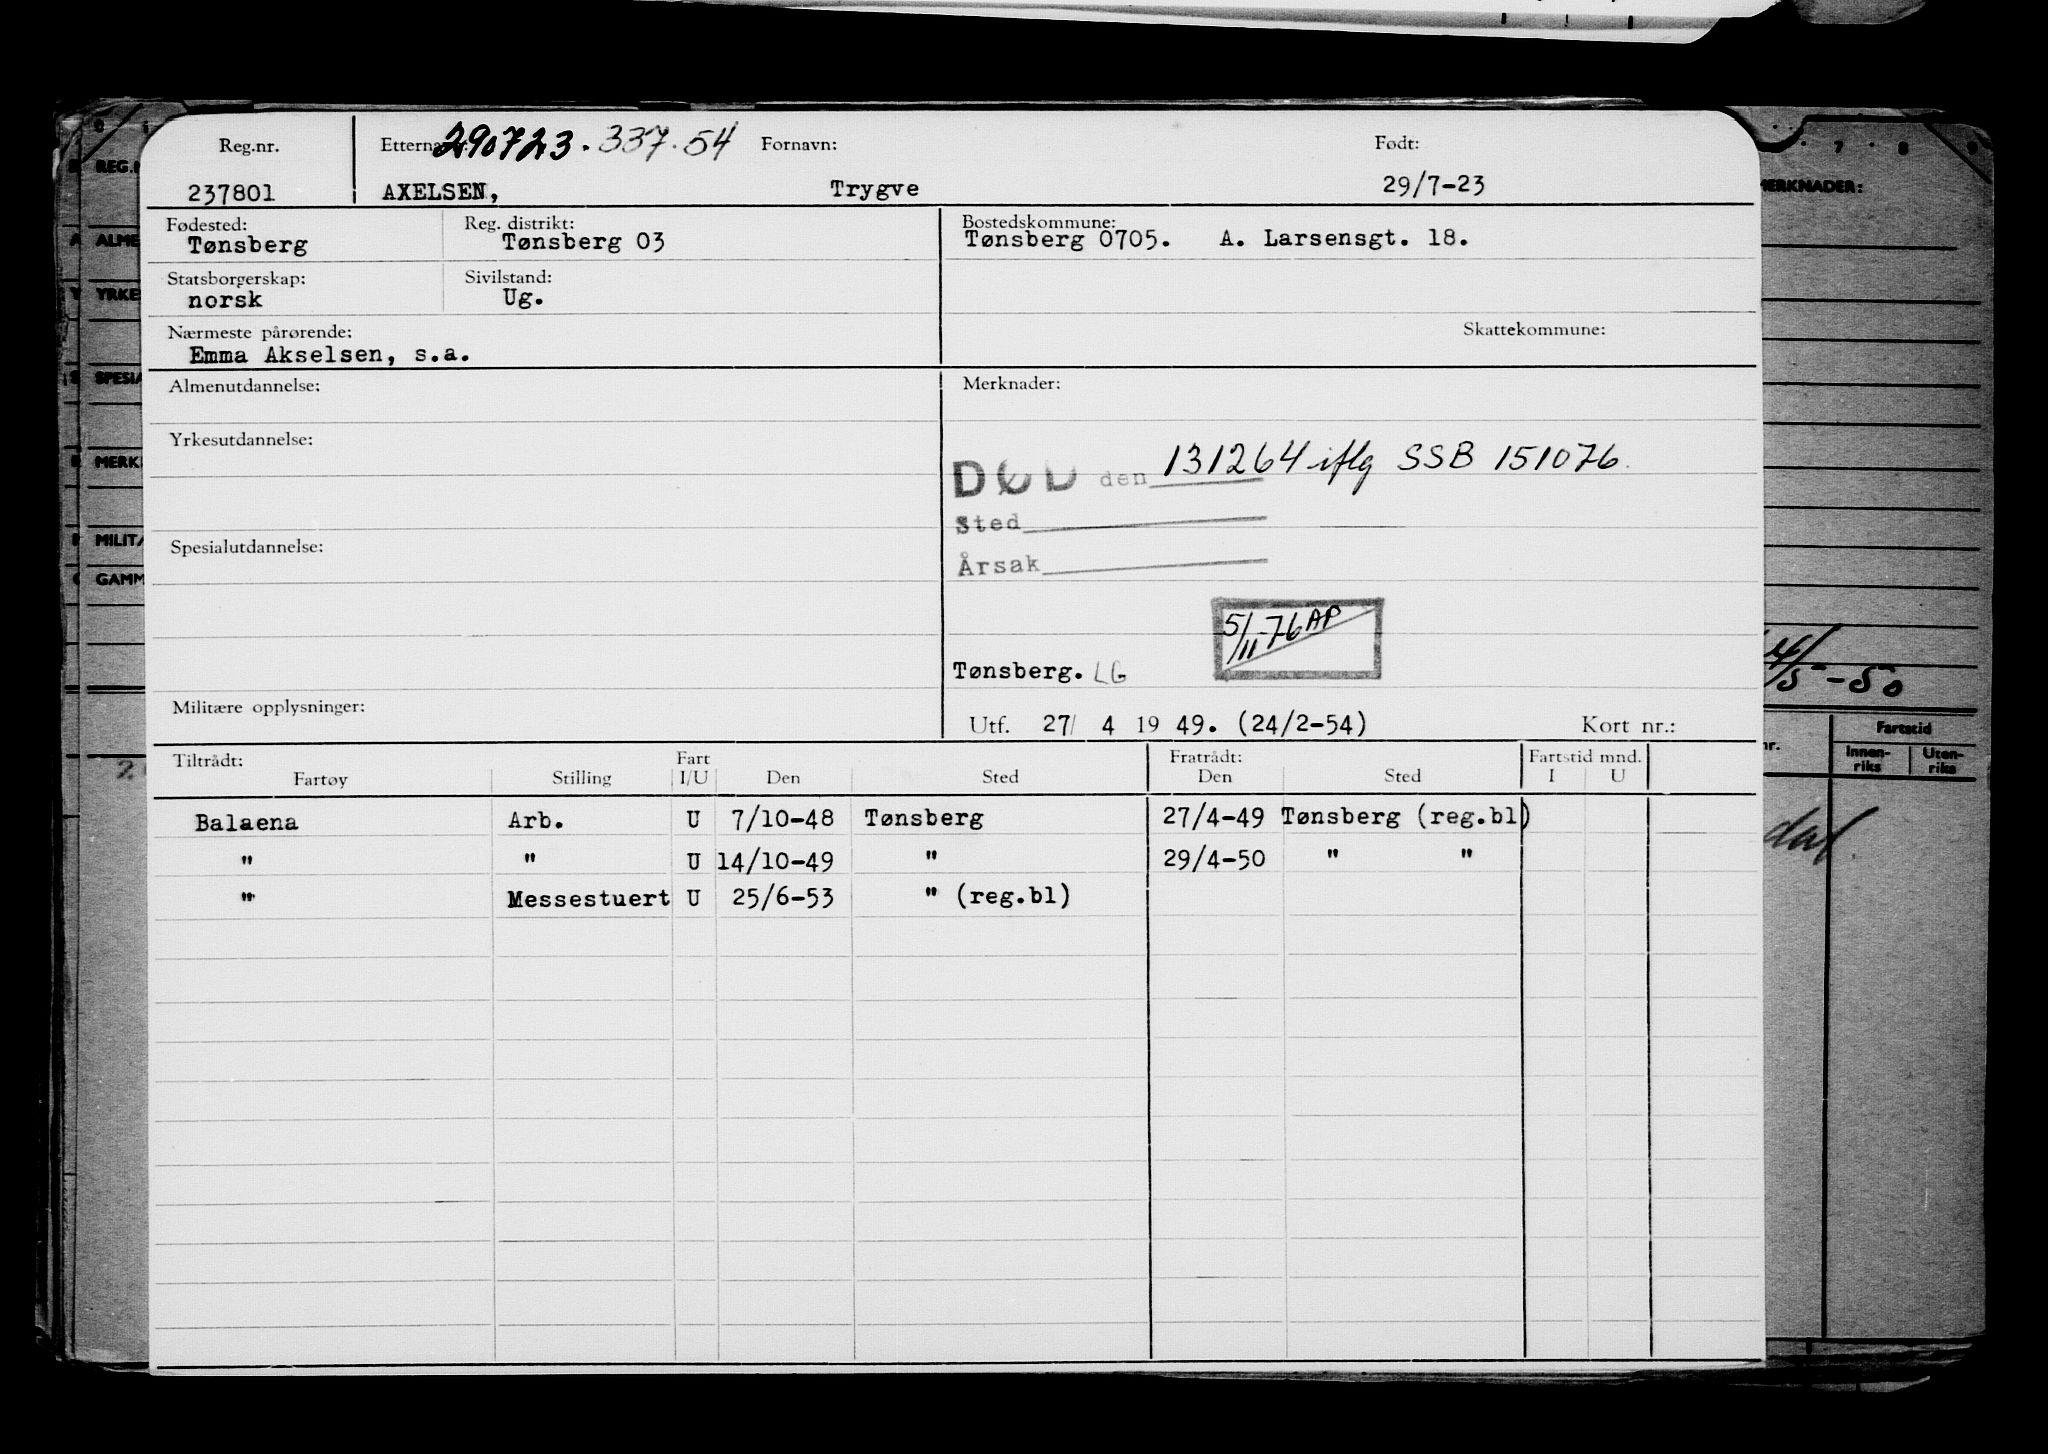 Reg.nr. Etternavn: 290723.337.54 Fornavn: Født:
237801 AXELSEN, Trygve 29/7-23
Fødested: Reg. distrikt: Bostedskommune:
Tønsberg Tønsberg 03 Tønsberg 0705. A. Larsensgt. 18.
Statsborgerskap: Sivilstand:
norsk Ug.
Nærmeste pårørende: Skattekommune:
Emma Akselsen, s.a.
Almenutdannelse: Merknader:
Yrkesutdannelse:
DØD den 131264 iflg SSB 151076.
Sted
Spesialutdannelse:
Årsak
5/11-76 AP
Tønsberg. LG
Militære opplysninger:
Utf. 27/ 4 19 49. (24/2-54) Kort nr.:
Tiltrådt: Fart Fratrådt: Fartstid mnd.
Fartøy Stilling I/U Den Sted Den Sted I U
Balaena Arb. U 7/10-48 Tønsberg 27/4-49 Tønsberg (reg.bl)
" " U 14/10-49 " 29/4-50 " "
" Messestuert U 25/6-53 " (reg.bl)
REG.N
ALME
YRKE
SPESIA
MERK
MILIT
GAMM
7 8 9
MERKNADER:
4/5-50
nr. Fartstid
Innen-riks Uten-riks